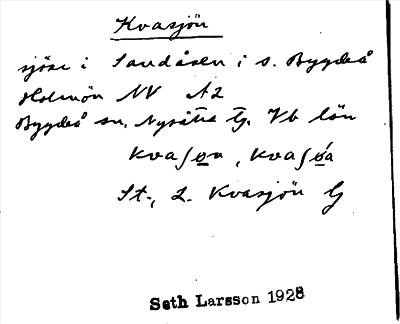 Kvasjön
sjöar i Sandåsen i s. Bygdeå
Holmön NV A2
Bygdeå sn. Nysätra tg. Vb län
kvaʃøn, kvaʃǿa
St., 2. Kvasjön G
Seth Larsson 1928